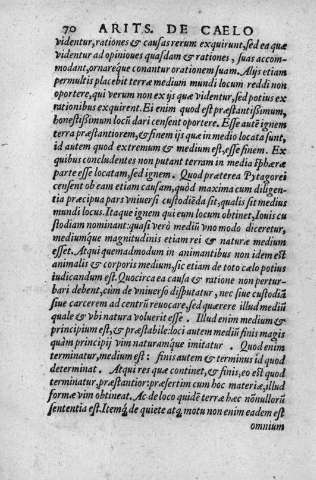 70 ARITS. DE CAELO
videntur, rationes & causas rerum exquirunt, sed ea quæ
videntur ad opiniones quasdam & rationes, suas accom-
modant, ornareque conantur orationem suam. Alijs etiam
permultis placebit terræ medium mundi locum reddi non
oportere, qui verum non ex ijs quæ videntur, sed potius ex
rationibus exquirent. Ei enim quod est præstantißimum,
honestißimum locū dari censent oportere. Esse autē ignem
terra præstantiorem, & finem ijs quæ in medio locata sunt,
id autem quod extremum & medium est, esse finem. Ex
quibus concludentes non putant terram in media sphæræ
parte esse locatam, sed ignem. Quod præterea Pytagorei
censent ob eam etiam causam, quòd maxima cum diligen-
tia præcipua pars vniuersi custodiēda sit, qualis sit medius
mundi locus. Itaque ignem qui eum locum obtinet, Iouis cu
stodiam nominant: quasi verò mediū vno modo diceretur,
mediumque magnitudinis etiam rei & naturæ medium
esset. Atqui quemadmodum in animantibus non idem est
animalis & corporis medium, sic etiam de toto cælo potius
iudicandum est. Quocirca ea causa & ratione non pertur-
bari debent, cùm de vniuerso disputatur, nec siue custodiā
siue carcerem ad centrū reuocare, sed quærere illud mediū
quale & vbi natura voluerit esse. Illud enim medium &
principium est, & præstabile: loci autem mediū finis magis
quàm principij vim naturamque imitatur. Quod enim
terminatur, medium est: finis autem & terminus id quod
determinat. Atqui res quæ continet, & finis, eo est quod
terminatur, præstantior: præsertim cum hoc materiæ, illud
formæ vim obtineat. Ac de loco quidē terræ hæc nōnullorū
sententia est. Itemq́ de quiete atq́ motu non enim eadem est
omnium